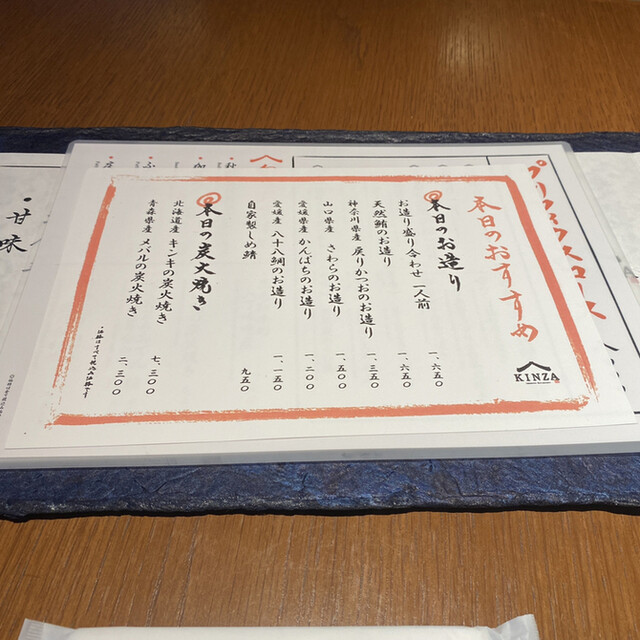 本日のおすすめ
本日のお造り
お造り盛り合わせ 一人前 一、六五〇
天然鮪のお造り 一、六五〇
神奈川県産 戻りかつおのお造り 一、三五〇
山口県産 さわらのお造り 一、五〇〇
愛媛県産 かんぱちのお造り 一、二〇〇
愛媛産 八十八鯛のお造り 一、一五〇
自家製しめ鯖 九五〇
本日の炭火焼き
北海道産 キンキの炭火焼き 七、三〇〇
青森県産 メバルの炭火焼き 二、三〇〇
KINZA
プリフィックスコース
・甘味